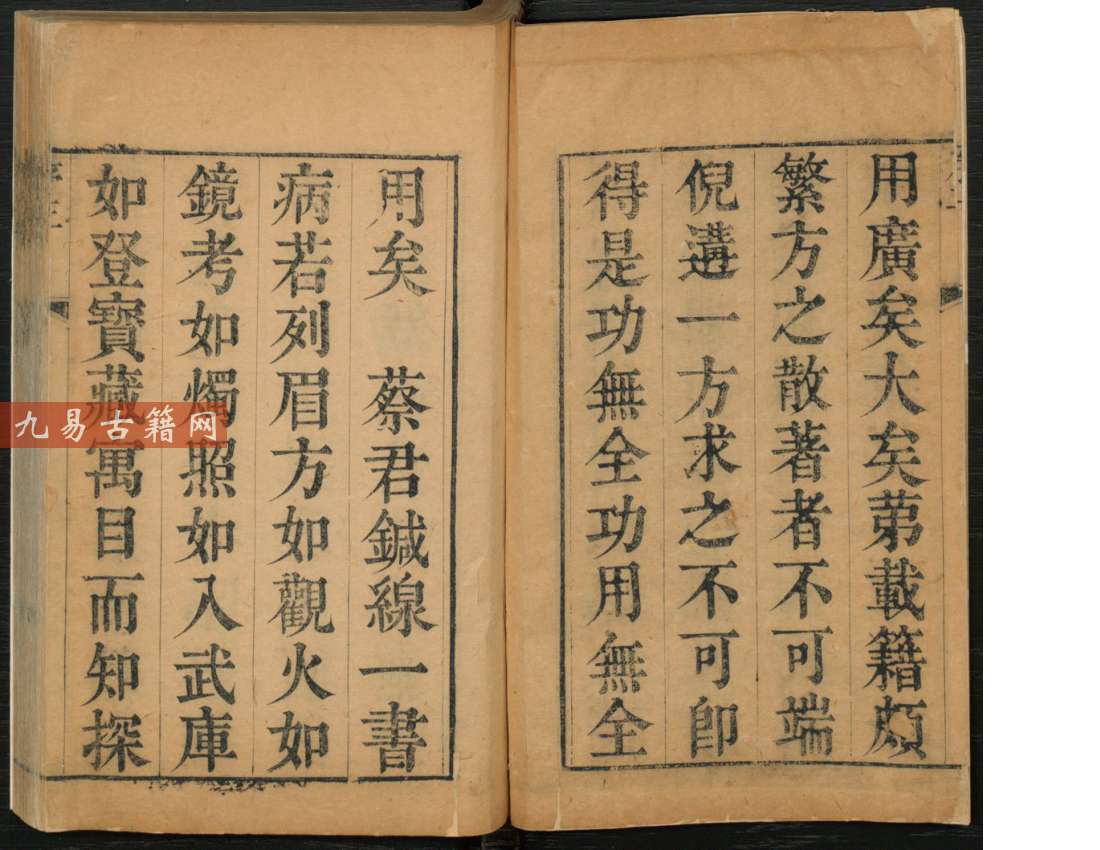 用廣矣大矣苐載籍頗
繁方之散著者不可端
倪遘一方求之不可卽
得是功無全功用無全
用矣　蔡君鍼線一書
病若列眉方如觀火如
鏡考如燭照如入武庫
如登寶藏寓目而知探
九易古籍网